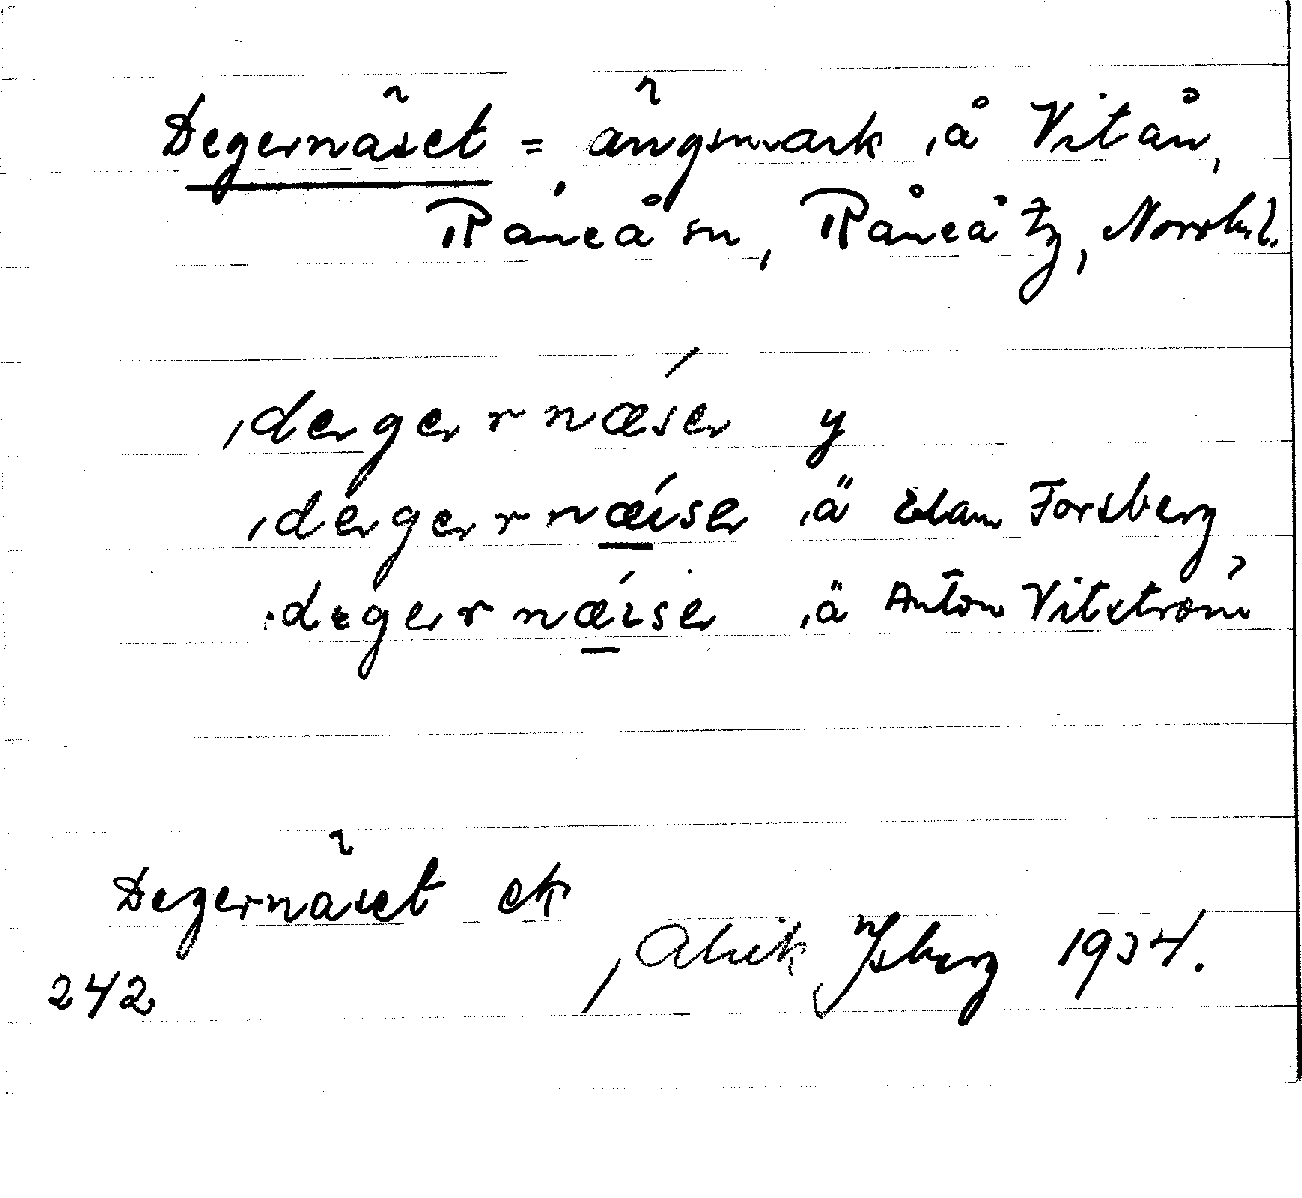 Degernäset = ängsmark å Vitån,
Råneå sn, Råneå tg, Norrb. l.
degernæser y
degernæise ä Elam Forsberg
degernæise ä Anton Vitström
Degernäset ek
Alrik Ysberg 1934.
242